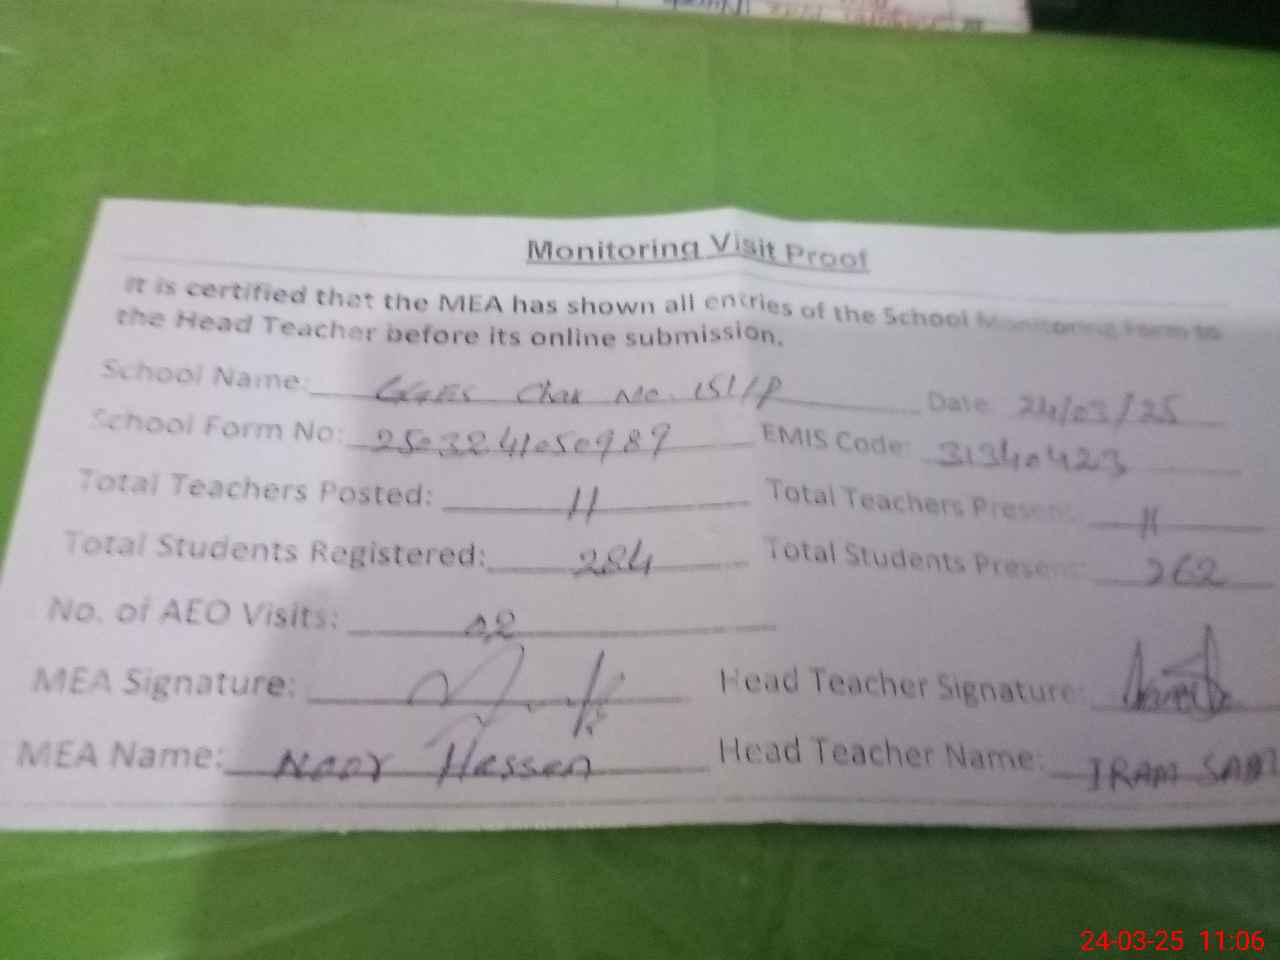 Monitoring Visit Proof
It is certified that the MEA has shown all entries of the School Monitoring Form to
the Head Teacher before its online submission.
School Name: GGES Chak No. 151/P Date: 24/03/25
School Form No: 2503241050989 EMIS Code: 31340423
Total Teachers Posted: 11 Total Teachers Present: 11
Total Students Registered: 284 Total Students Present: 262
No. of AEO Visits: 02
MEA Signature: Head Teacher Signature:
MEA Name: Noor Hassan Head Teacher Name: IRAM
24-03-25 11:06